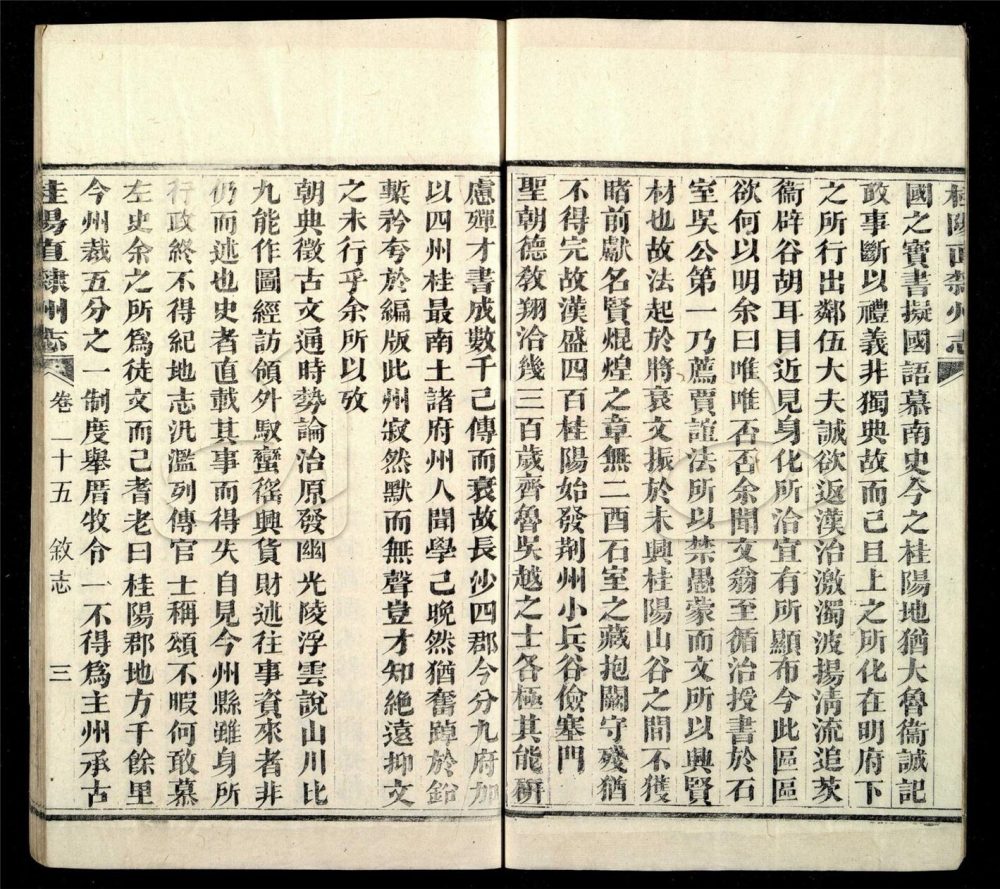 桂陽直隸州志
國之寶書擬國語慕南史今之桂陽地猶大魯衞誠記
政事斷以禮義非獨典故而已且上之所化在明府下
之所行出鄰伍大夫誠欲返漢治激濁波揚清流追茨
衞辟谷胡耳目近見身化所洽宜有所顯布今此區區
欲何以明余曰唯唯否否余聞文翁至循治授書於石
室吳公第一乃薦賈誼法所以禁愚蒙而文所以興賢
材也故法起於將衰文振於未興桂陽山谷之間不獲
睹前獻名賢焜煌之章無二酉石室之藏抱關守殘猶
不得完故漢盛四百桂陽始發荆州小兵谷儉塞門
聖朝德敎翔洽幾三百歲齊魯吳越之士各極其能硏
慮殫才書成數千己傳而衰故長沙四郡今分九府加
以四州桂最南土諸府州人聞學己晚然猶奮踔於鉛
槧矜夸於編版此州寂然默而無聲豈才知絶遠抑文
之未行乎余所以攷
朝典徵古文通時勢論治原發幽光陵浮雲說山川比
九能作圖經訪領外馭蠻徭興貨財述往事資來者非
仍而述也史者直載其事而得失自見今州縣雖身所
行政終不得紀地志汎濫列傳官士稱頌不暇何敢慕
左史余之所爲徒文而己耆老曰桂陽郡地方千餘里
今州裁五分之一制度舉厝牧令一不得爲主州承古
桂陽直隸州志 卷二十五 敘志 三